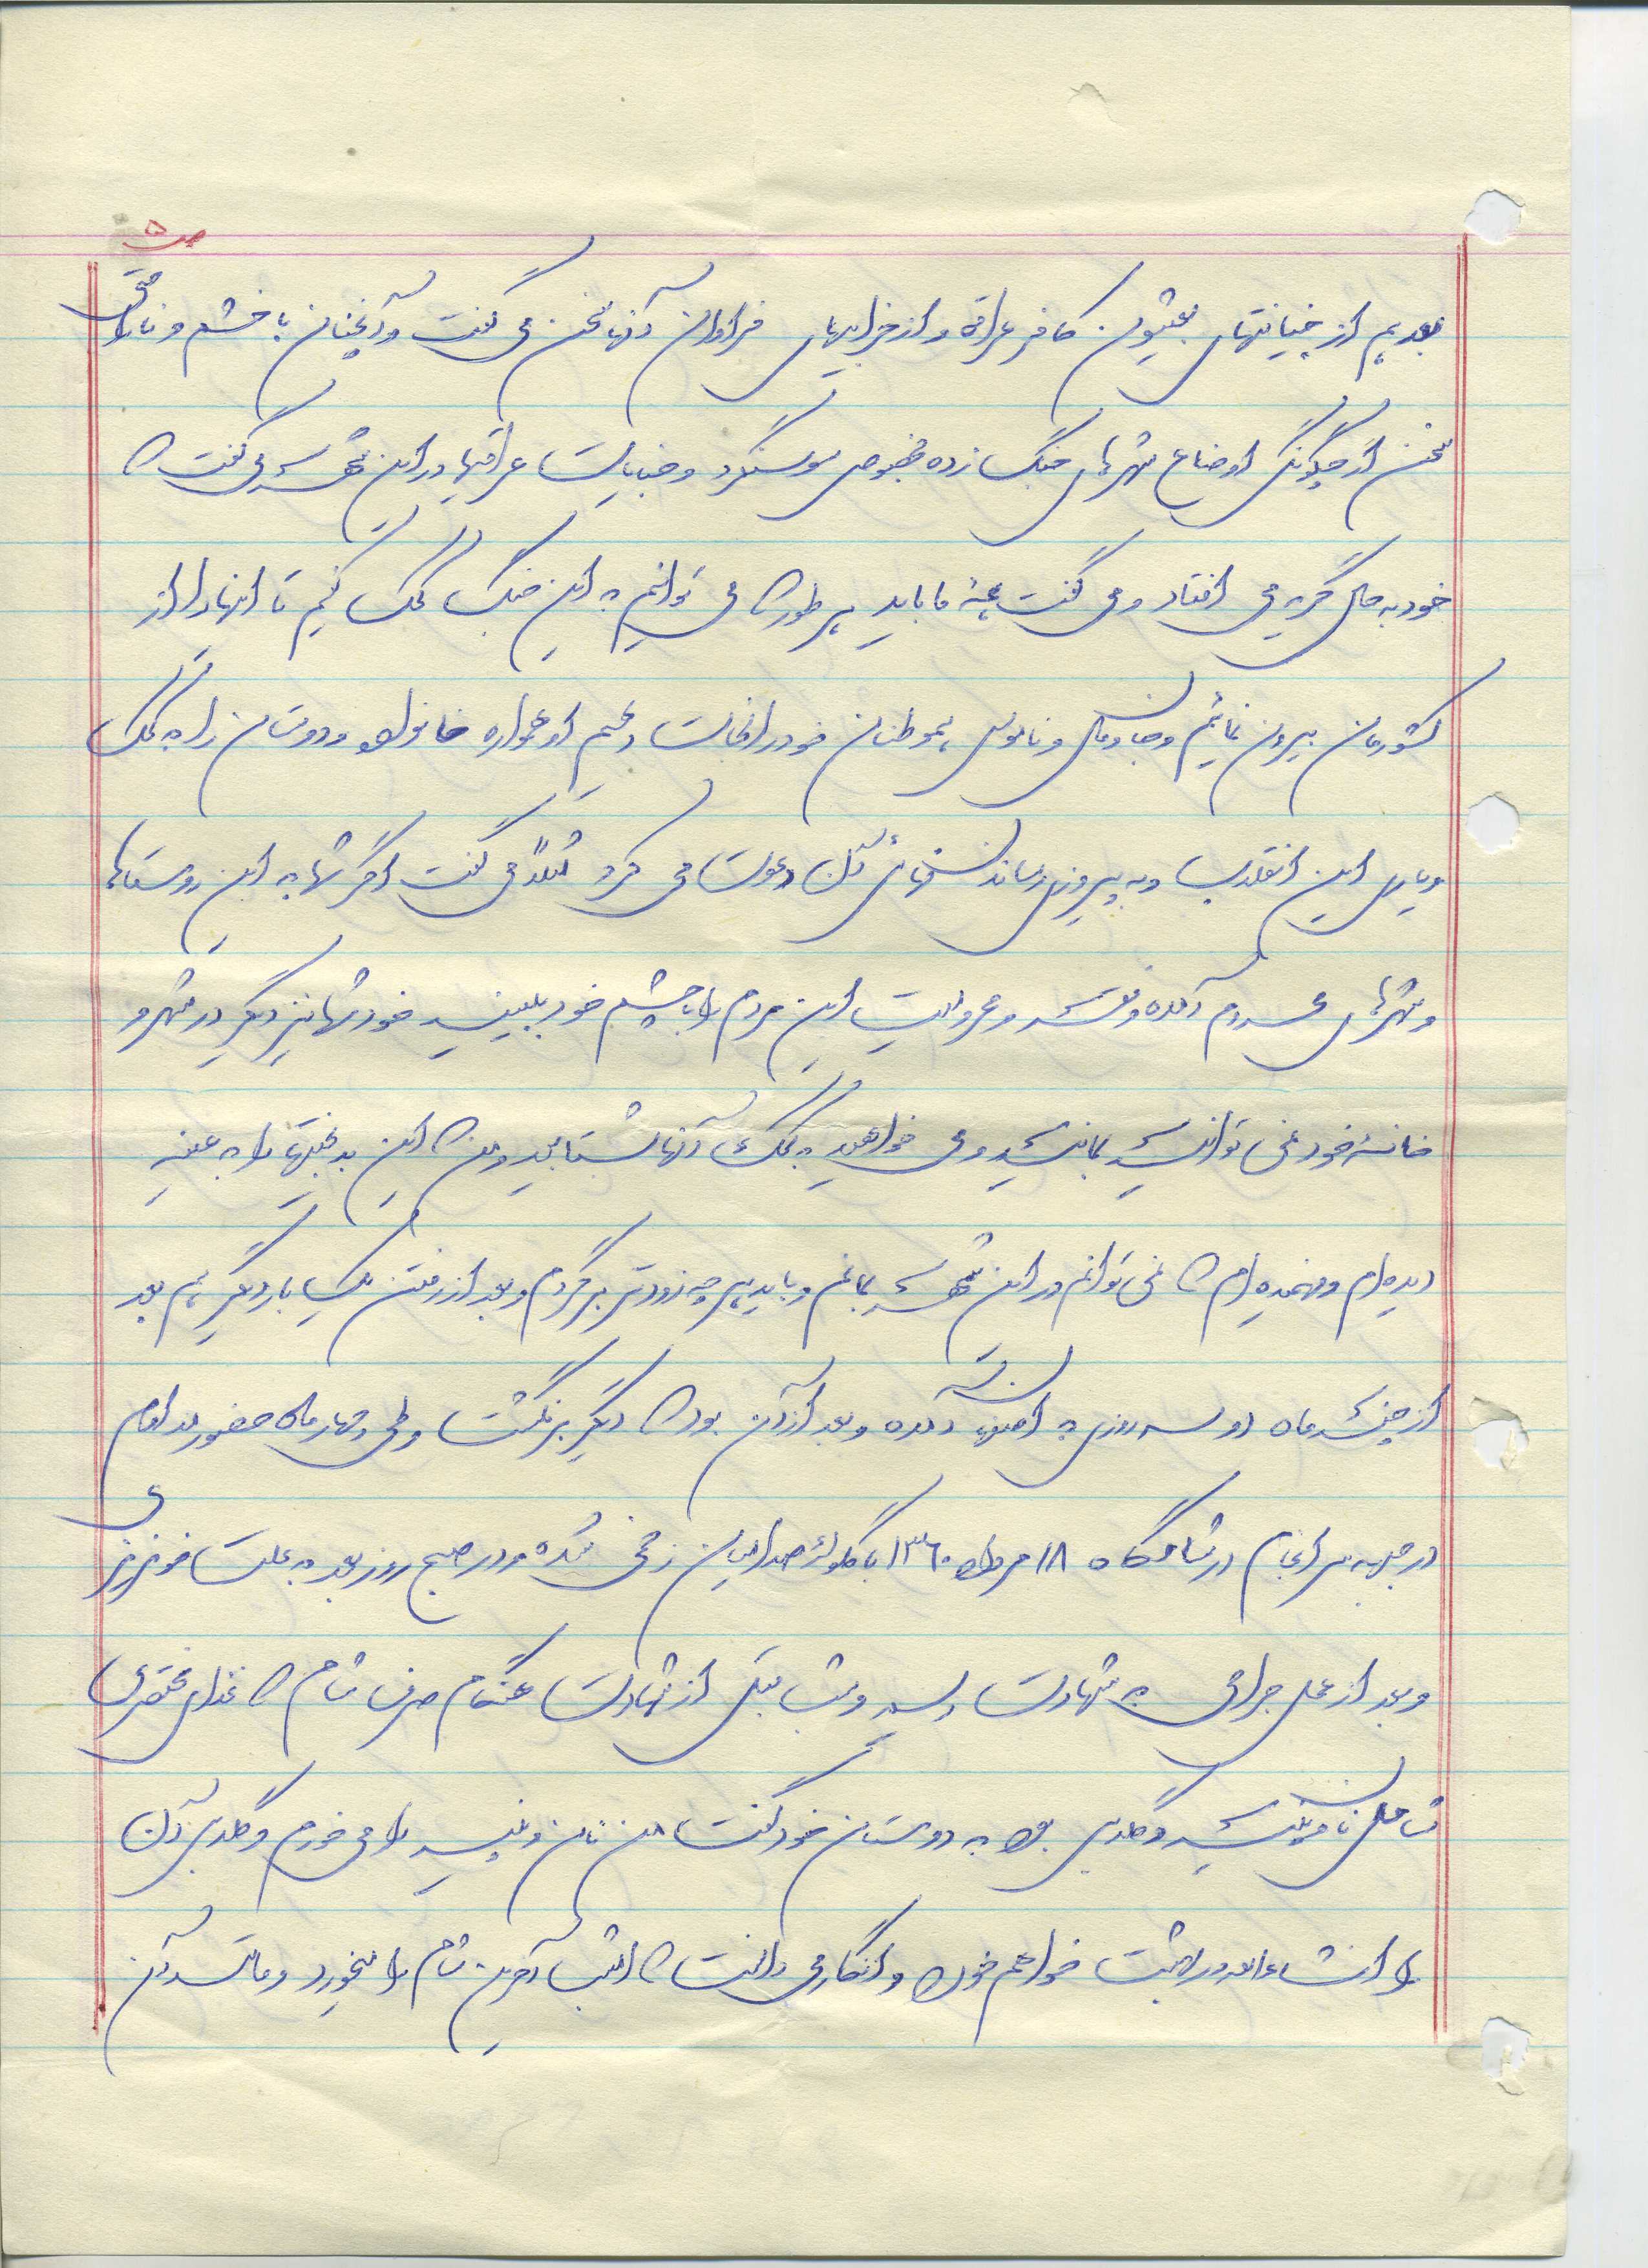 ص۵
بعد هم از خیانتهای بعثیون کافر عراق و از خرابیهای فراوان آنها سخن می گفت و آنچنان با خشم و ناراحتی
سخن از چگونگی اوضاع شهرهای جنگ زده بخصوص سوسنگرد و جنایات عراقیها در این شهر می گفت که
خود به حال گریه می افتاد و می گفت همۀ ما باید هر طور که می توانیم به این جنگ کمک کنیم تا اینها را از
کشورمان بیرون نمائیم و جان و مال و ناموس هموطنان خود را نجات دهیم او همواره خانواده و دوستان را به کمک
و یاری این انقلاب و به پیروزی رساندن نهائی آن دعوت می کرد مثلاً می گفت اگر شما به این روستاها
و شهرهای محروم آمده و فقر و محرومیت این مردم را با چشم خود ببینید خود شما نیز دیگر در شهر و
خانۀ خود نمی توانید بمانید و می خواهید به کمک آنها بشتابید و من که این بدبختیها را به عینه
دیده ام و فهمیده ام که نمی توانم در این شهر بمانم و باید هر چه زودتر برگردم و بعد از رفتن یک بار دیگر هم بعد
از چند ماه دو سه روزی به اصفهان آمده و بعد از آن بود که دیگر برنگشت و طی چهار ماه حضور مداوم
در جبهه سرانجام در شامگاه ۱۸ مرداد ۱۳۶۰ با گلولۀ صدامیان زخمی شده و در صبح روز بعد به علت خونریزی
و بعد از عمل جراحی به شهادت رسید و شب قبل از شهادت هنگام صرف شام که غذای مختصری
شامل نان و پنیر و گلابی بود به دوستان خود گفت من نان و پنیر را می خورم و گلابی آن
را انشاءالله در بهشت خواهم خورد و انگار می دانست که امشب آخرین شام را میخورد و مانند آن